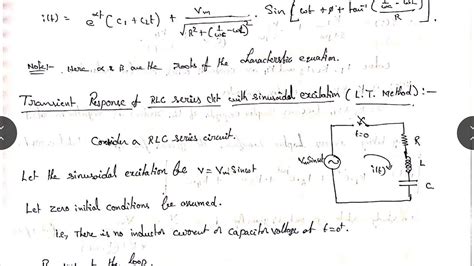 i(t) = e^{αt} (C₁ + C₂t) + Vm / √(R² + (1/ωc - ωL)²) . Sin [ωt + φ + tan⁻¹ (1/ωc - ωL / R)]
Note:- Here α & β are the roots of the characteristic equation.
Transient Response of RLC series ckt with sinusoidal excitation (L.T. Method) :-
Consider a RLC series circuit.
Let the sinusoidal excitation be v = Vm Sinωt
Let zero initial conditions be assumed.
i.e, There is no inductor current or capacitor voltage at t=0⁺.
t=0
R
L
Vm Sinωt
i(t)
C
to the loop.